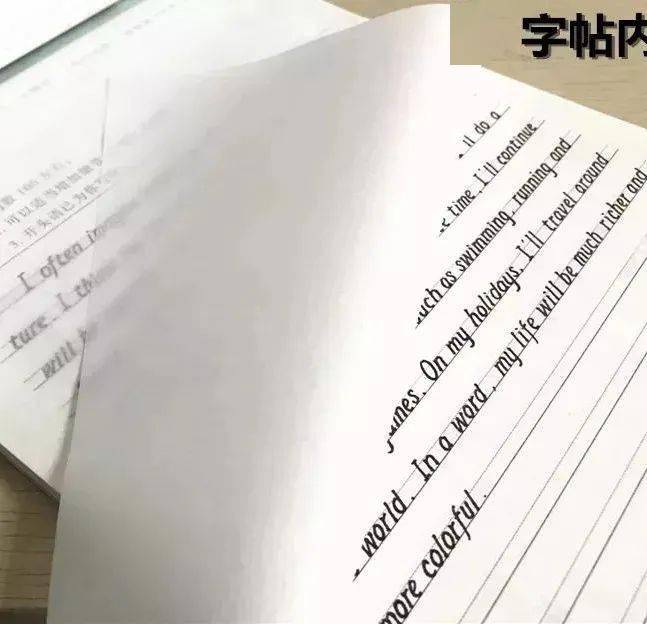 字帖内
数100左右。
可以适当增加细节
3. 开头语已为你
I often
ture. I
will
ll do a
time. I'll continue
such as swimming, running and
games. On my holidays, I'll travel around
world. In a word, my life will be much richer and
more colorful.